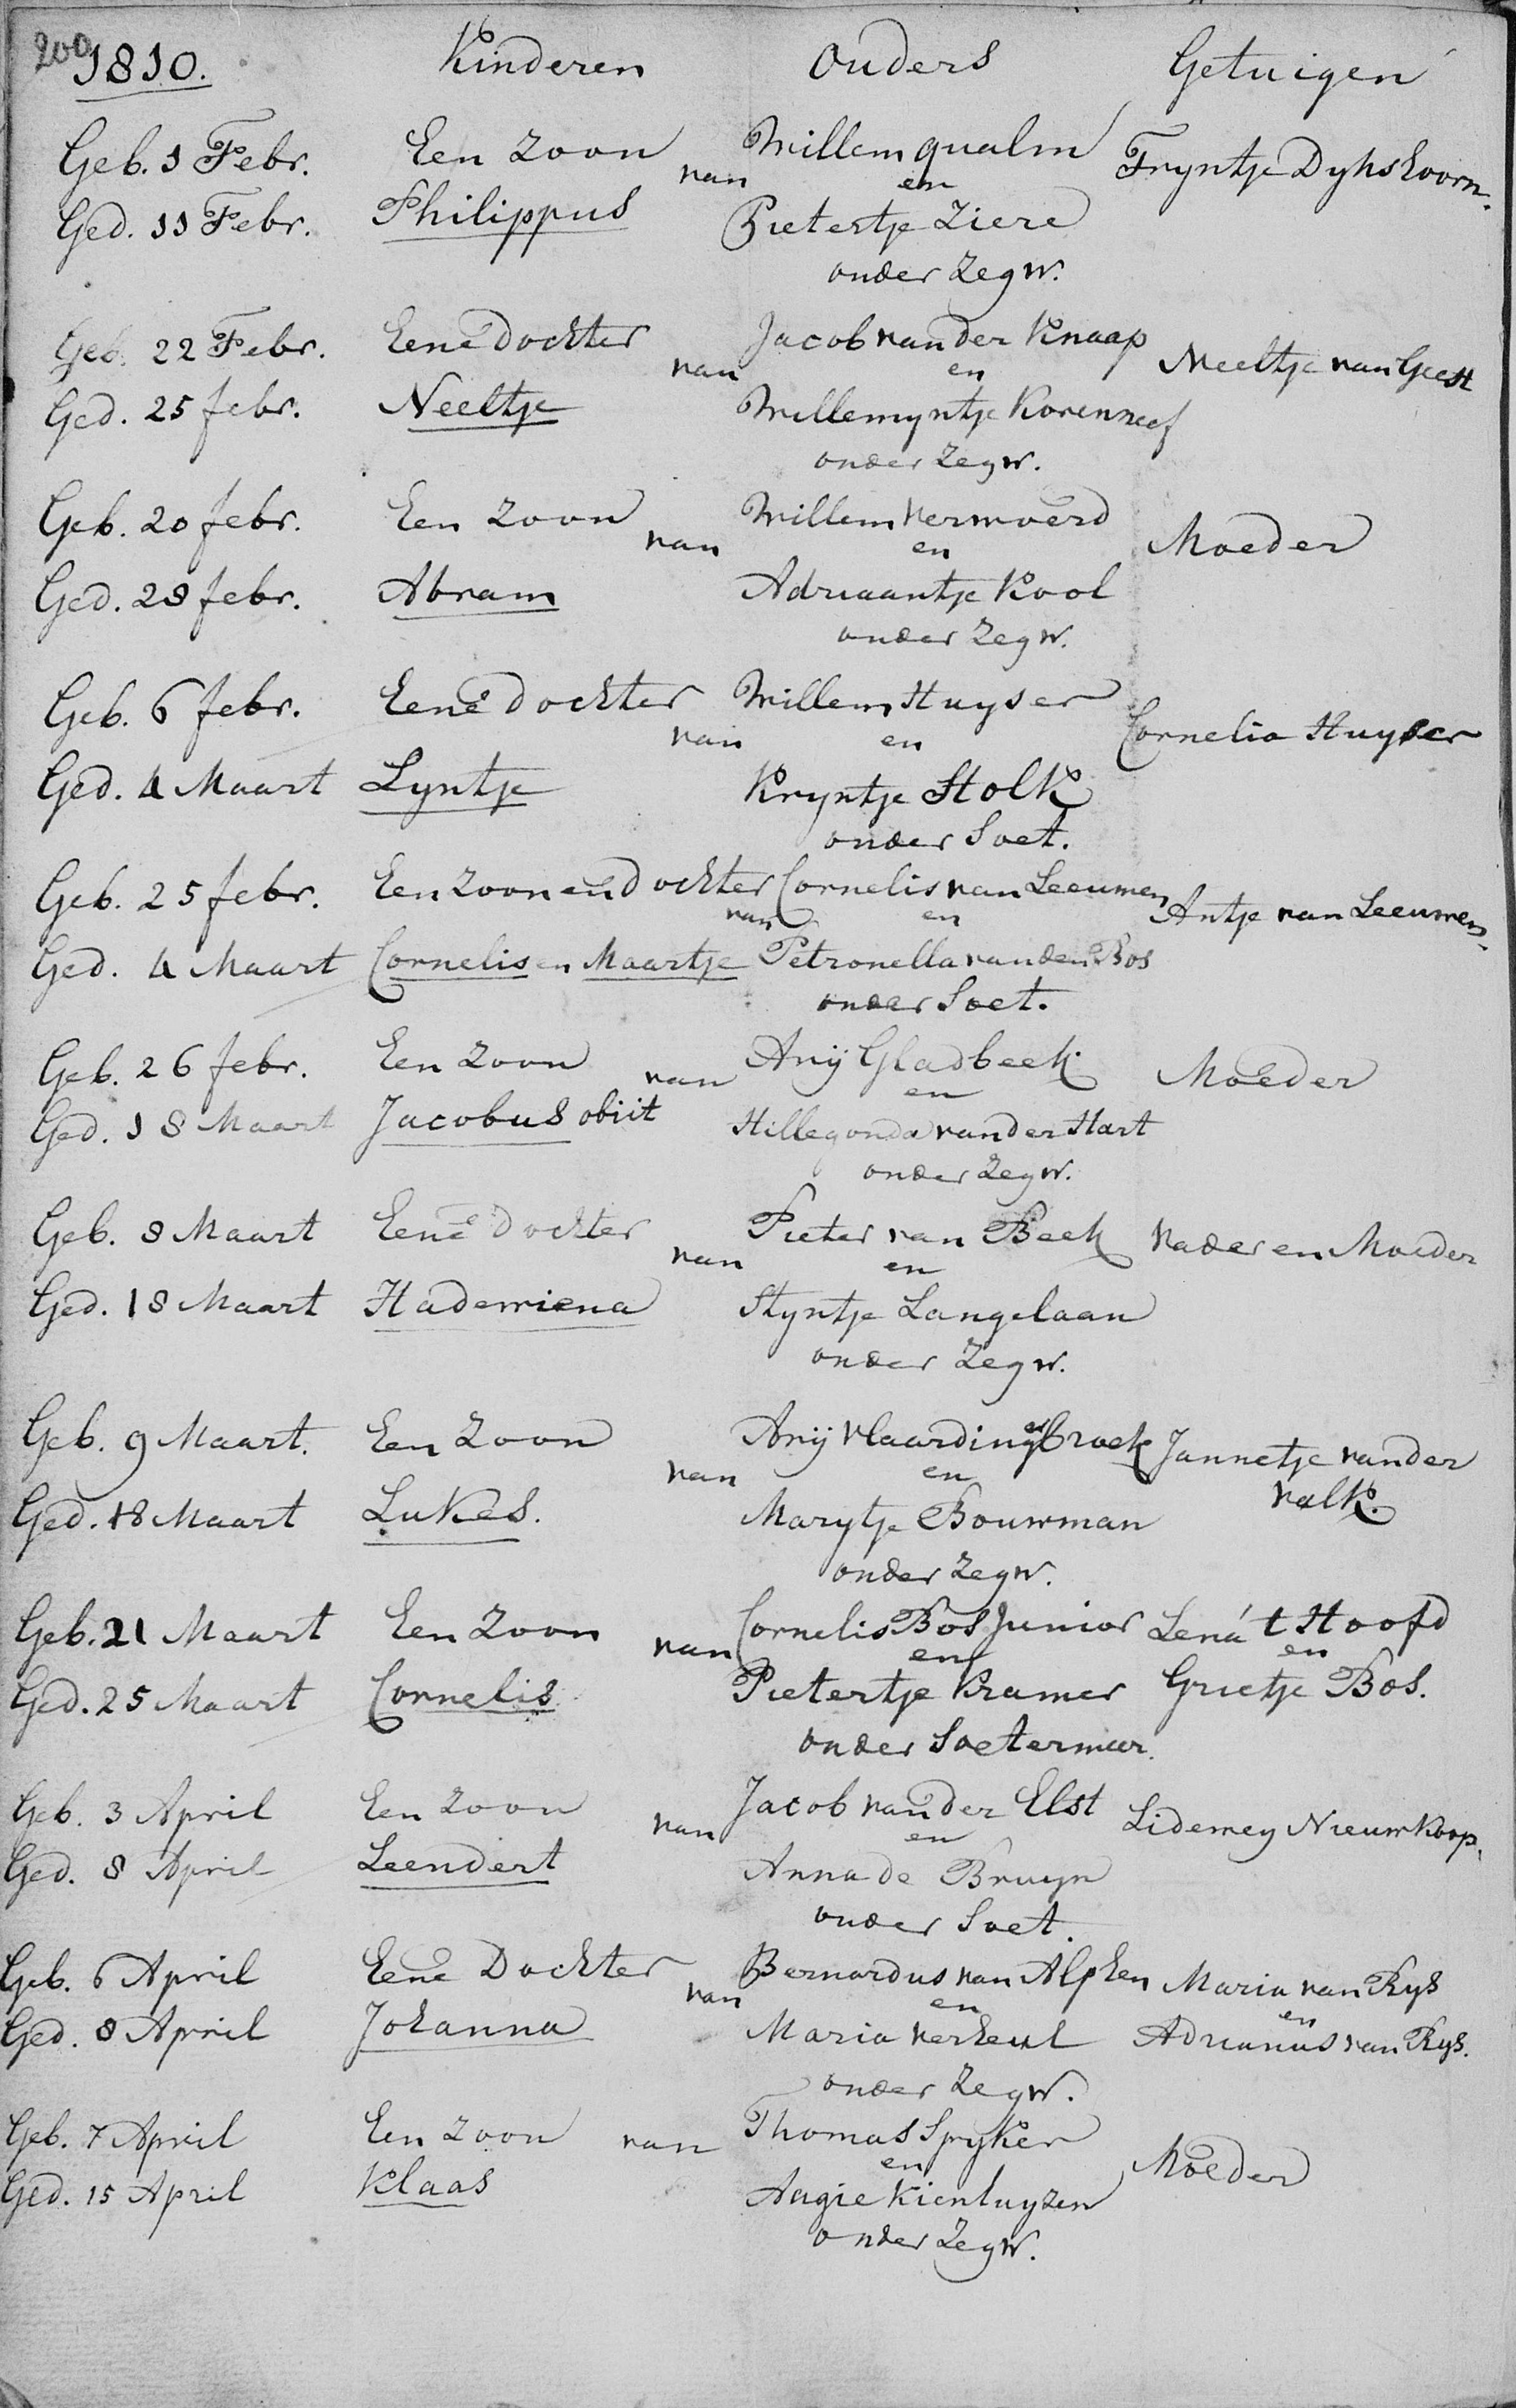 200
1810. Kinderen Ouders Getuigen
Geb. 1 Febr. Een Zoon van Willem Qualm Tryntje Dykshoorn.
en
Ged. 11 Febr. Philippus Pietertje Ziere
onder Zegw.
Geb. 22 Febr. Eene Dochter van Jacob van der Knaap Neeltje van Geest
en
Ged. 25 febr. Neeltje Willemyntje Korenneef
onder Zegw.
Geb. 20 febr. Een Zoon van Willem Vermoerd Moeder
en
Ged. 28 febr. Abram Adriaantje Kool
onder Zegw.
Geb. 6 febr. Eene Dochter van Willem Huyser Cornelia Huyser
en
Ged. 4 Maart Lyntje Kryntje Stolk
onder Soet.
Geb. 25 febr. Een Zoon en Dochter van Cornelis van Leeuwen Antje van Leeuwen.
en
Ged. 4 Maart Cornelis en Maartje Petronella van den Bos
onder Soet.
Geb. 26 febr. Een Zoon van Arij Gladbeek Moeder
en
Ged. 18 Maart Jacobus obiit Hillegonda van der Hart
onder Zegw.
Geb. 8 Maart Eene Dochter van Pieter van Beek Vader en Moeder
en
Ged. 18 Maart Hadewiena Styntje Langelaan
onder Zegw.
Geb. 9 Maart. Een Zoon van Arij Vlaardingerbroek Jannetje van der
en Valk.
Ged. 18 Maart Lukas. Marytje Bouwman
onder Zegw.
Geb. 21 Maart Een Zoon van Cornelis Bos Junior Lena 't Hoofd
en en
Ged. 25 Maart Cornelis Pietertje Kramer Grietje Bos.
onder Soetermeer.
Geb. 3 April Een Zoon van Jacob van der Elst Lidewey Nieuwkoop.
en
Ged. 8 April Leendert Anna de Bruyn
onder Soet.
Geb. 6 April Eene Dochter van Bernardus van Alphen Maria van Rys
en en
Ged. 8 April Johanna Maria Verheul Adrianus van Rys.
onder Zegw.
Geb. 7 April Een Zoon van Thomas Spyker Moeder
en
Ged. 15 April Klaas Aagie Kienhuyzen
onder Zegw.